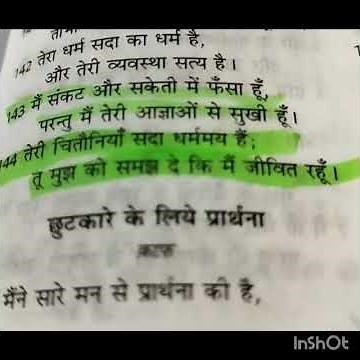 142 तेरा धर्म सदा का धर्म है,
और तेरी व्यवस्था सत्य है।
143 मैं संकट और सकेती में फँसा हूँ,
परन्तु मैं तेरी आज्ञाओं से सुखी हूँ।
144 तेरी चितौनियाँ सदा धर्ममय हैं;
तू मुझ को समझ दे कि मैं जीवित रहूँ।
छुटकारे के लिये प्रार्थना
क़ाफ़
मैंने सारे मन से प्रार्थना की है,
InShOt